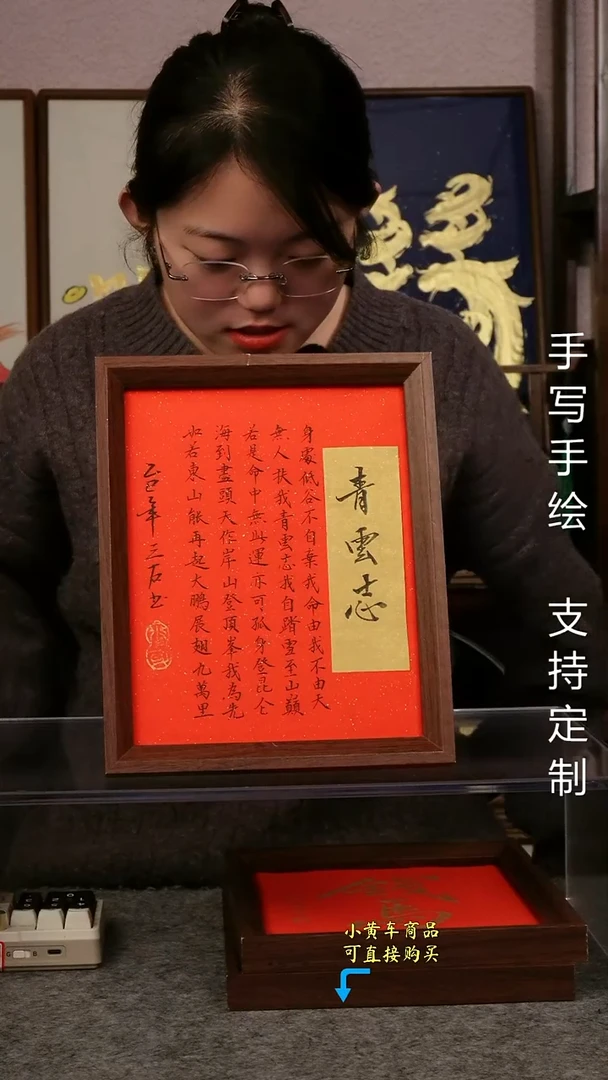 青雲志
身處低谷不自棄我命由我不由天
無人扶我青雲志我自踏雪至山巔
若是命中無此運亦可孤身登昆仑
海到盡頭天作岸山登頂峯我為先
如若東山能再起大鵬展翅九萬里
乙巳年三石书
手写手绘 支持定制
小黄车商品
可直接购买